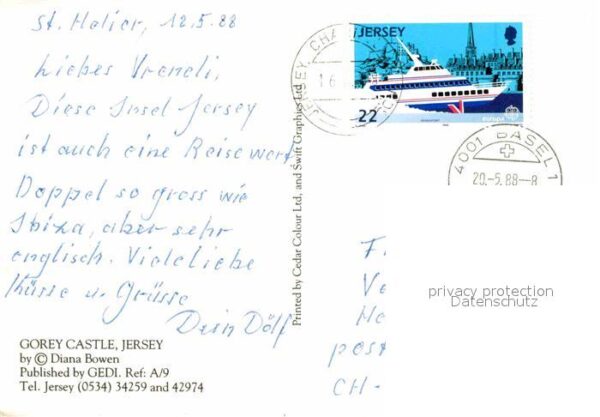 St. Helier, 12.5.88
Liebes Vreneli,
Diese Insel Jersey
ist auch eine Reise wert.
Doppel so gross wie
Ibiza, aber sehr
englisch. Viele liebe
Küsse u. Grüsse
Dein Dölf
GOREY CASTLE, JERSEY
by © Diana Bowen
Published by GEDI. Ref: A/9
Tel. Jersey (0534) 34259 and 42974
Printed by Cedar Colour Ltd, and Swift Graphics Ltd
JERSEY
22
europa
JERSEY CHA
4001 BASEL 1
20.-5.88--8
F
Ve
He
post
CH-
privacy protection
Datenschutz